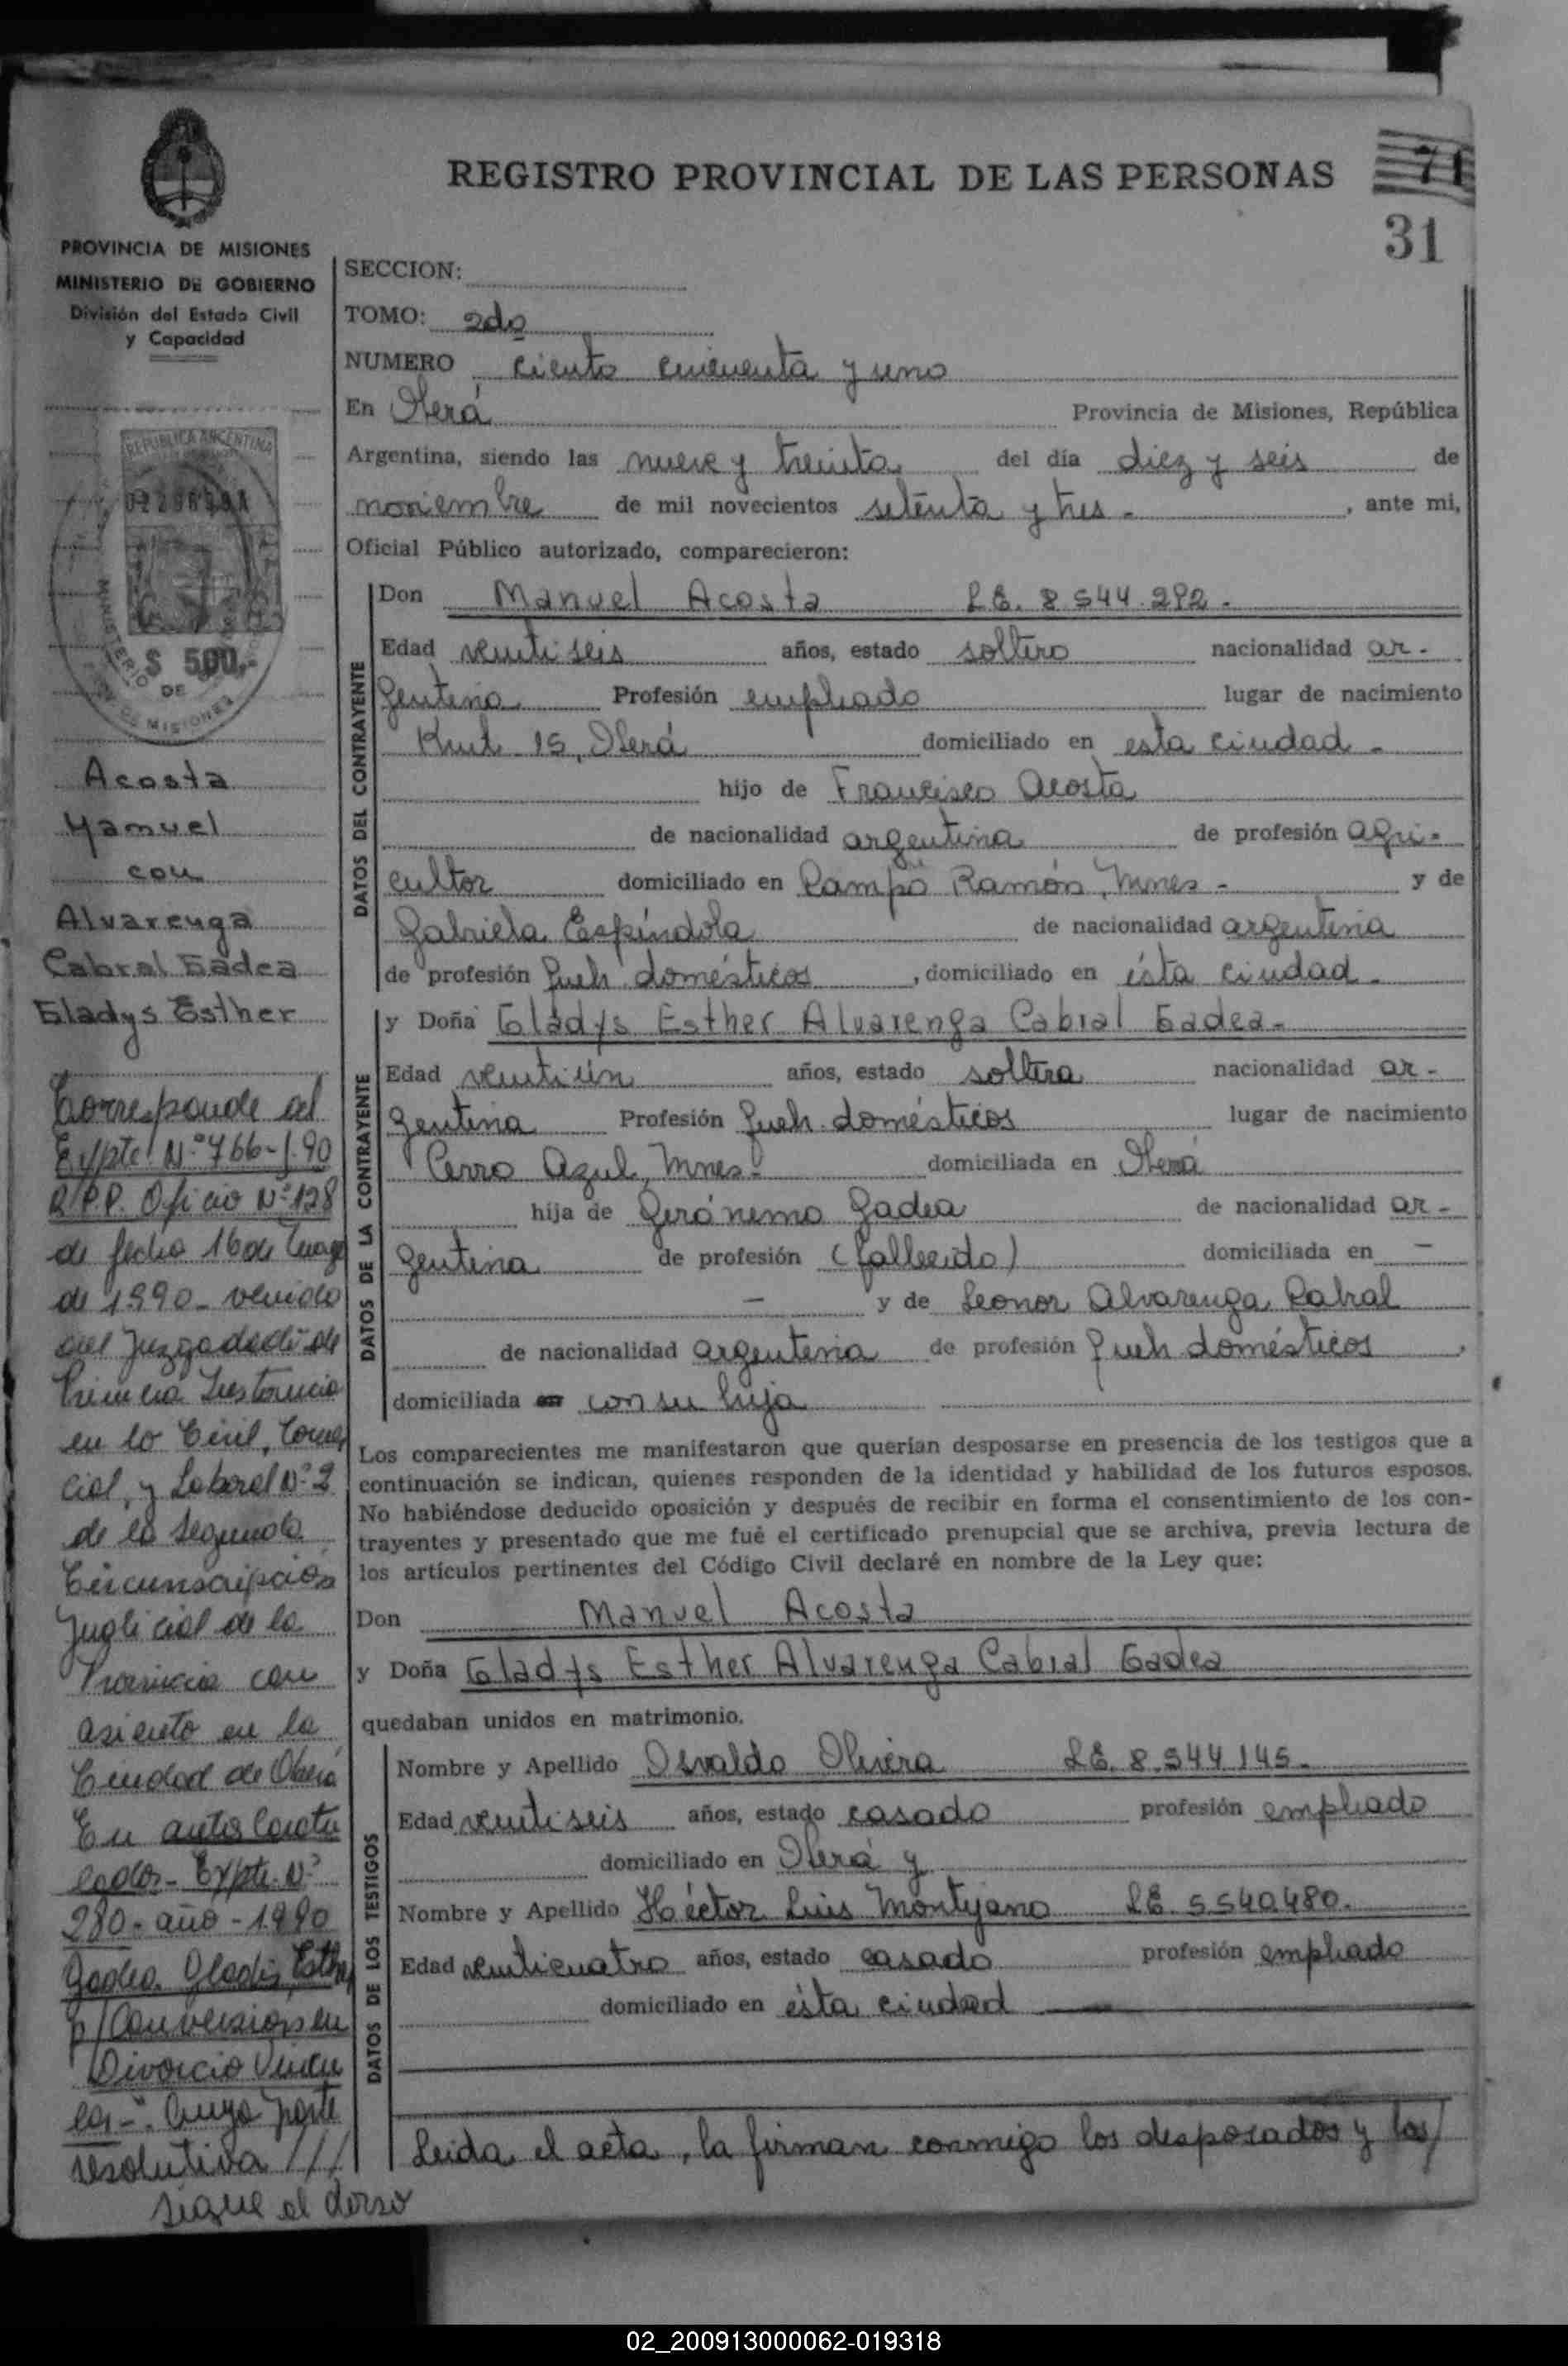 REGISTRO PROVINCIAL DE LAS PERSONAS
71
31
PROVINCIA DE MISIONES
MINISTERIO DE GOBIERNO
División del Estado Civil
y Capacidad
REPUBLICA ARGENTINA
$ 500.-
MINISTERIO DE
DE MISIONES
Acosta
Manuel
con
Alvarenga
Cabral Gadea
Gladys Esther
Corresponde al
Expte. N° 766-J-90
R.P.P. Oficio N° 128
de fecha 16 de
de 1990- venido
del Juzgado de
Primera Instancia
en lo Civil, Comer
cial, y Laboral N° 2
de la Segunda
Circunscripción
Judicial de la
Provincia con
asiento en la
Ciudad de Oberá
En autos Caratu
lados- Expte. N°
280- año- 1990
Gadea Gladis Esther
p/ Conversion en
Divorcio Vincu
lar-". Cuya parte
resolutiva ///
sigue al dorso
SECCION:
TOMO: 2do
NUMERO ciento cincuenta y uno
En Oberá Provincia de Misiones, República
Argentina, siendo las nueve y treinta del día diez y seis de
noviembre de mil novecientos setenta y tres - , ante mi,
Oficial Público autorizado, comparecieron:
DATOS DEL CONTRAYENTE
Don Manuel Acosta L.E. 8.544.292.-
Edad veintiseis años, estado soltero nacionalidad ar-
gentina Profesión empleado lugar de nacimiento
15, Oberá domiciliado en esta ciudad -
hijo de Francisco Acosta
de nacionalidad argentina de profesión agri-
cultor domiciliado en Campo Ramón, Mnes - y de
Gabriela Espíndola de nacionalidad argentina
de profesión Queh. domésticos , domiciliado en ésta ciudad -
DATOS DE LA CONTRAYENTE
y Doña Gladys Esther Alvarenga Cabral Gadea-
Edad veintiún años, estado soltera nacionalidad ar-
gentina Profesión Queh. domésticos lugar de nacimiento
Cerro Azul, Mnes- domiciliada en Oberá
hija de Gerónimo Gadea de nacionalidad ar-
gentina de profesión (fallecido) domiciliada en -
- y de Leonor Alvarenga Cabral
de nacionalidad argentina de profesión Queh domésticos ,
domiciliada en con su hija
Los comparecientes me manifestaron que querían desposarse en presencia de los testigos que a
continuación se indican, quienes responden de la identidad y habilidad de los futuros esposos.
No habiéndose deducido oposición y después de recibir en forma el consentimiento de los con-
trayentes y presentado que me fué el certificado prenupcial que se archiva, previa lectura de
los artículos pertinentes del Código Civil declaré en nombre de la Ley que:
Don Manuel Acosta
y Doña Gladys Esther Alvarenga Cabral Gadea
quedaban unidos en matrimonio.
DATOS DE LOS TESTIGOS
Nombre y Apellido Osvaldo Olivera L.E. 8.544.145-
Edad veintiseis años, estado casado profesión empleado
domiciliado en Oberá y
Nombre y Apellido Héctor Luis Montyano L.E. 5.540.480.
Edad veinticuatro años, estado casado profesión empleado
domiciliado en ésta ciudad
Leida el acta, la firman conmigo los desposados y los/
02_200913000062-019318